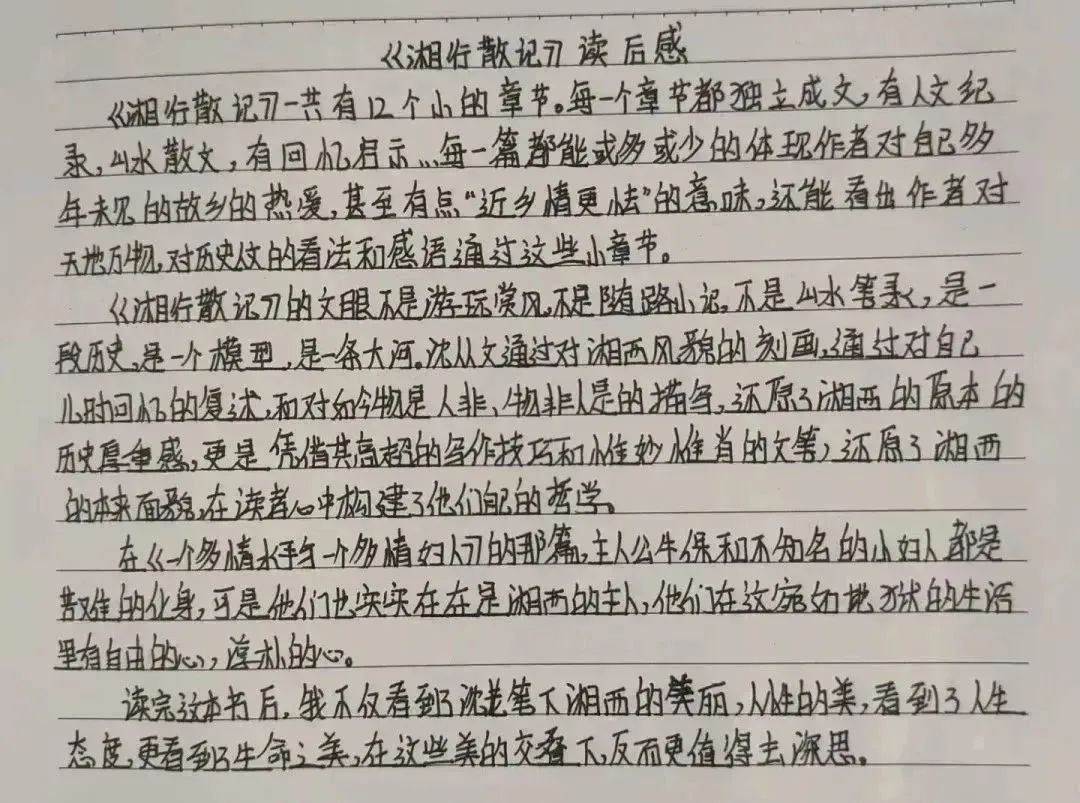 《湘行散记》读后感
《湘行散记》一共有12个小的章节。每一个章节都独立成文,有人文纪
录,山水散文,有回忆启示…每一篇都能或多或少的体现作者对自己多
年未见的故乡的热爱,甚至有点“近乡情更怯”的意味,还能看出作者对
天地万物,对历史人文的看法和感语通过这些小章节。
《湘行散记》的文眼不是游玩赏风,不是随路小记,不是山水笔录,是一
段历史,是一个模型,是一条大河。沈从文通过对湘西风貌的刻画,通过对自己
儿时回忆的复述,和对如今物是人非、物非人是的描写,还原了湘西的原本的
历史厚重感,更是凭借其高超的写作技巧和惟妙惟肖的文笔,还原了湘西
的本来面貌,在读者心中构建了他们自己的哲学。
在《一个多情水手与一个多情妇人》的那篇,主人公牛保和不知名的小妇人都是
苦难的化身,可是他们也实实在在是湘西的主人,他们在这宛如地狱的生活
里有自由的心,淳朴的心。
读完这本书后,我不仅看到了沈老笔下湘西的美丽,人性的美,看到了人生
态度,更看到了生命之美,在这些美的交叠下,反而更值得去深思。